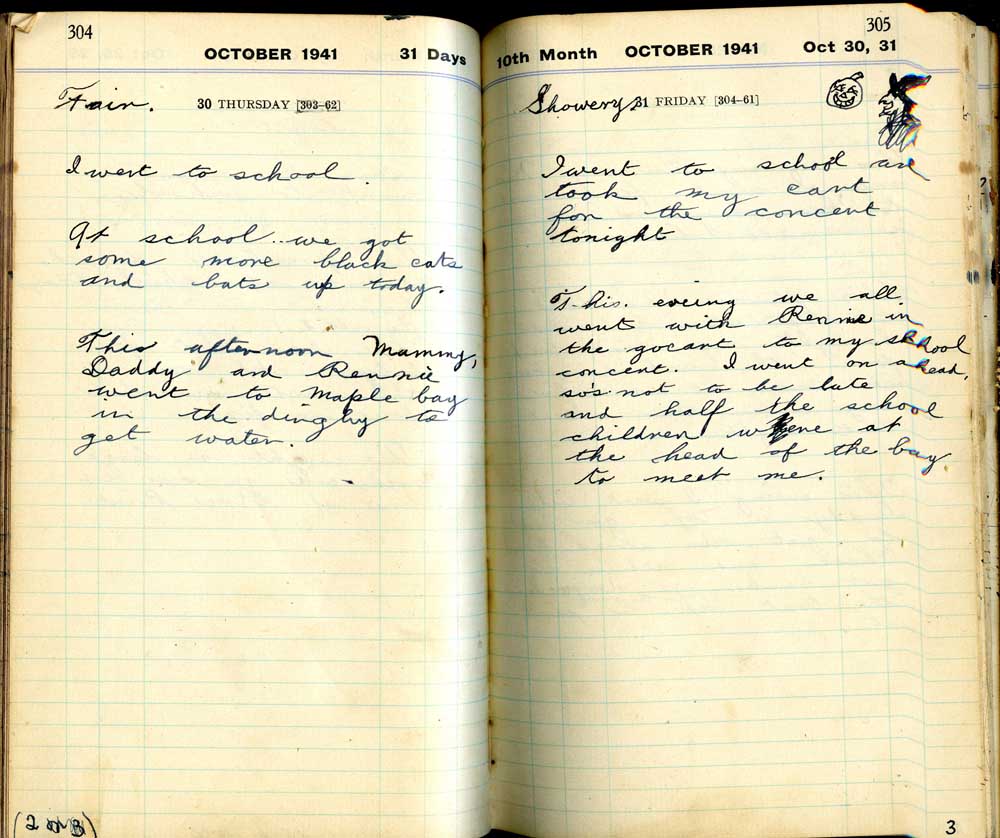 304
OCTOBER 1941 31 Days
Fair. 30 THURSDAY [303–62]
I went to school.
At school we got
some more black cats
and bats up today.
This afternoon Mammy,
Daddy and Rennie
went to Maple bay
in the dinghy to
get water.
305
10th Month OCTOBER 1941 Oct 30, 31
Showery. 31 FRIDAY [304–61]
I went to school an
took my cart
for the concert
tonight
This. eveing we all
went with Rennie in
the gocart to my school
concert. I went on ahead,
so's not to be late
and half the school
children were at
the head of the bay
to meet me.
3